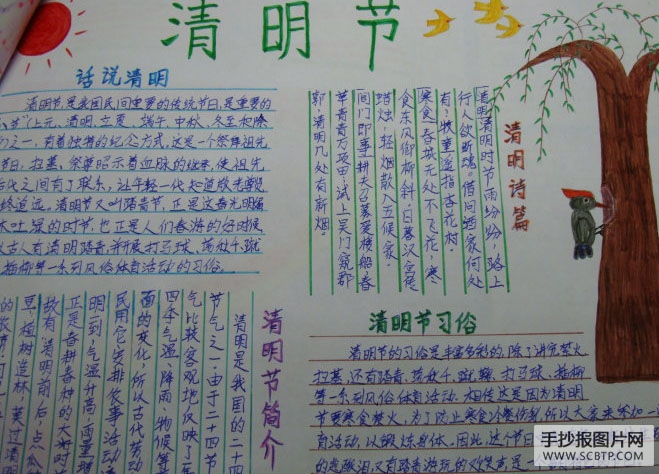 清明节
话说清明
清明节,是我国民间重要的传统节日,是重要的
"八节"(上元、清明、立夏、端午、中秋、冬至和除
之一,有着独特的纪念方式,这是一个祭拜祖先
节日,扫墓、祭
之间有了联系,让年轻一代知道
终追远。清明节又叫踏青节,正是
大吐绿的时节,也正是人们春游的好时候
古人有清明踏青,并开展打马球、荡秋千、蹴
、插柳等一系列风俗体育活动的习俗。
清明诗篇
清明清明时节雨纷纷,路上
行人欲断魂。借问酒家何处
有?牧童遥指杏花村。
寒食 春城无处不飞花,寒
食东风御柳斜。日暮汉宫传
蜡烛,轻烟散入五侯家。
闾门即事耕夫召募爱楼船,春
草青青万项田;试上吴门窥郡
郭,清明几处有新烟。
清明节简介
清明是我国的二十四
节气之一。由于二十四节
气比较客观地反映了
四季气温、降雨、物候等
面的变化,所以古代劳动
民用它安排农事活动
明一到,气温升高,雨量
正是春耕春种的大好时
故有"清明前后,点瓜
豆"、"植树造林,莫过清
清明节习俗
清明节的习俗是丰富多彩的,除了讲究禁火、
扫墓,还有踏青、荡秋千、蹴鞠、打马球、插柳
等一系列风俗体育活动。相传这是因为清明
节要寒食禁火,为了防止寒食冷餐伤身,所以大家来参加一
育活动,以锻炼身体。因此,这个节日
的悲酸泪,又有踏青游玩的欢笑声,是一
手抄报图片网
WWW.SCBTP.COM